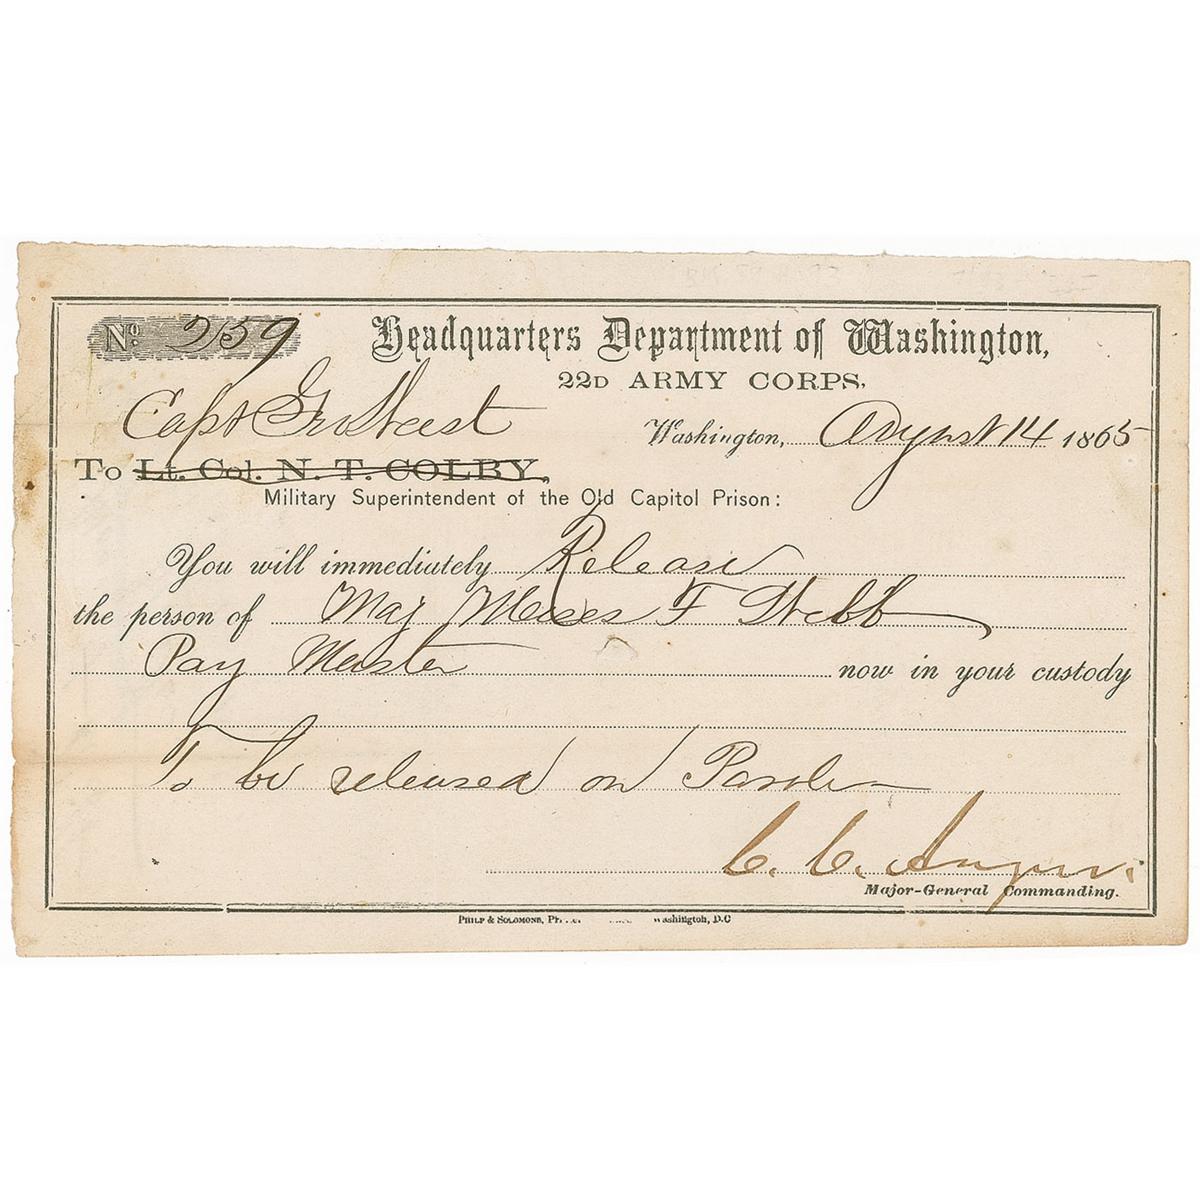 No. 259
Headquarters Department of Washington,
22D ARMY CORPS,
Capt
Washington, August 14 1865
To Lt. Col. N. T. COLBY,
Military Superintendent of the Old Capitol Prison:
You will immediately Release
the person of Maj Moses F Webb
Pay Master now in your custody
To be released on Parole
C. C. Augur
Major-General Commanding.
PHILP & SOLOMONS, Washington, D.C